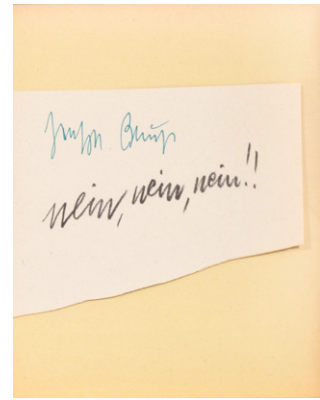 Joseph Beuys
nein, nein, nein!!